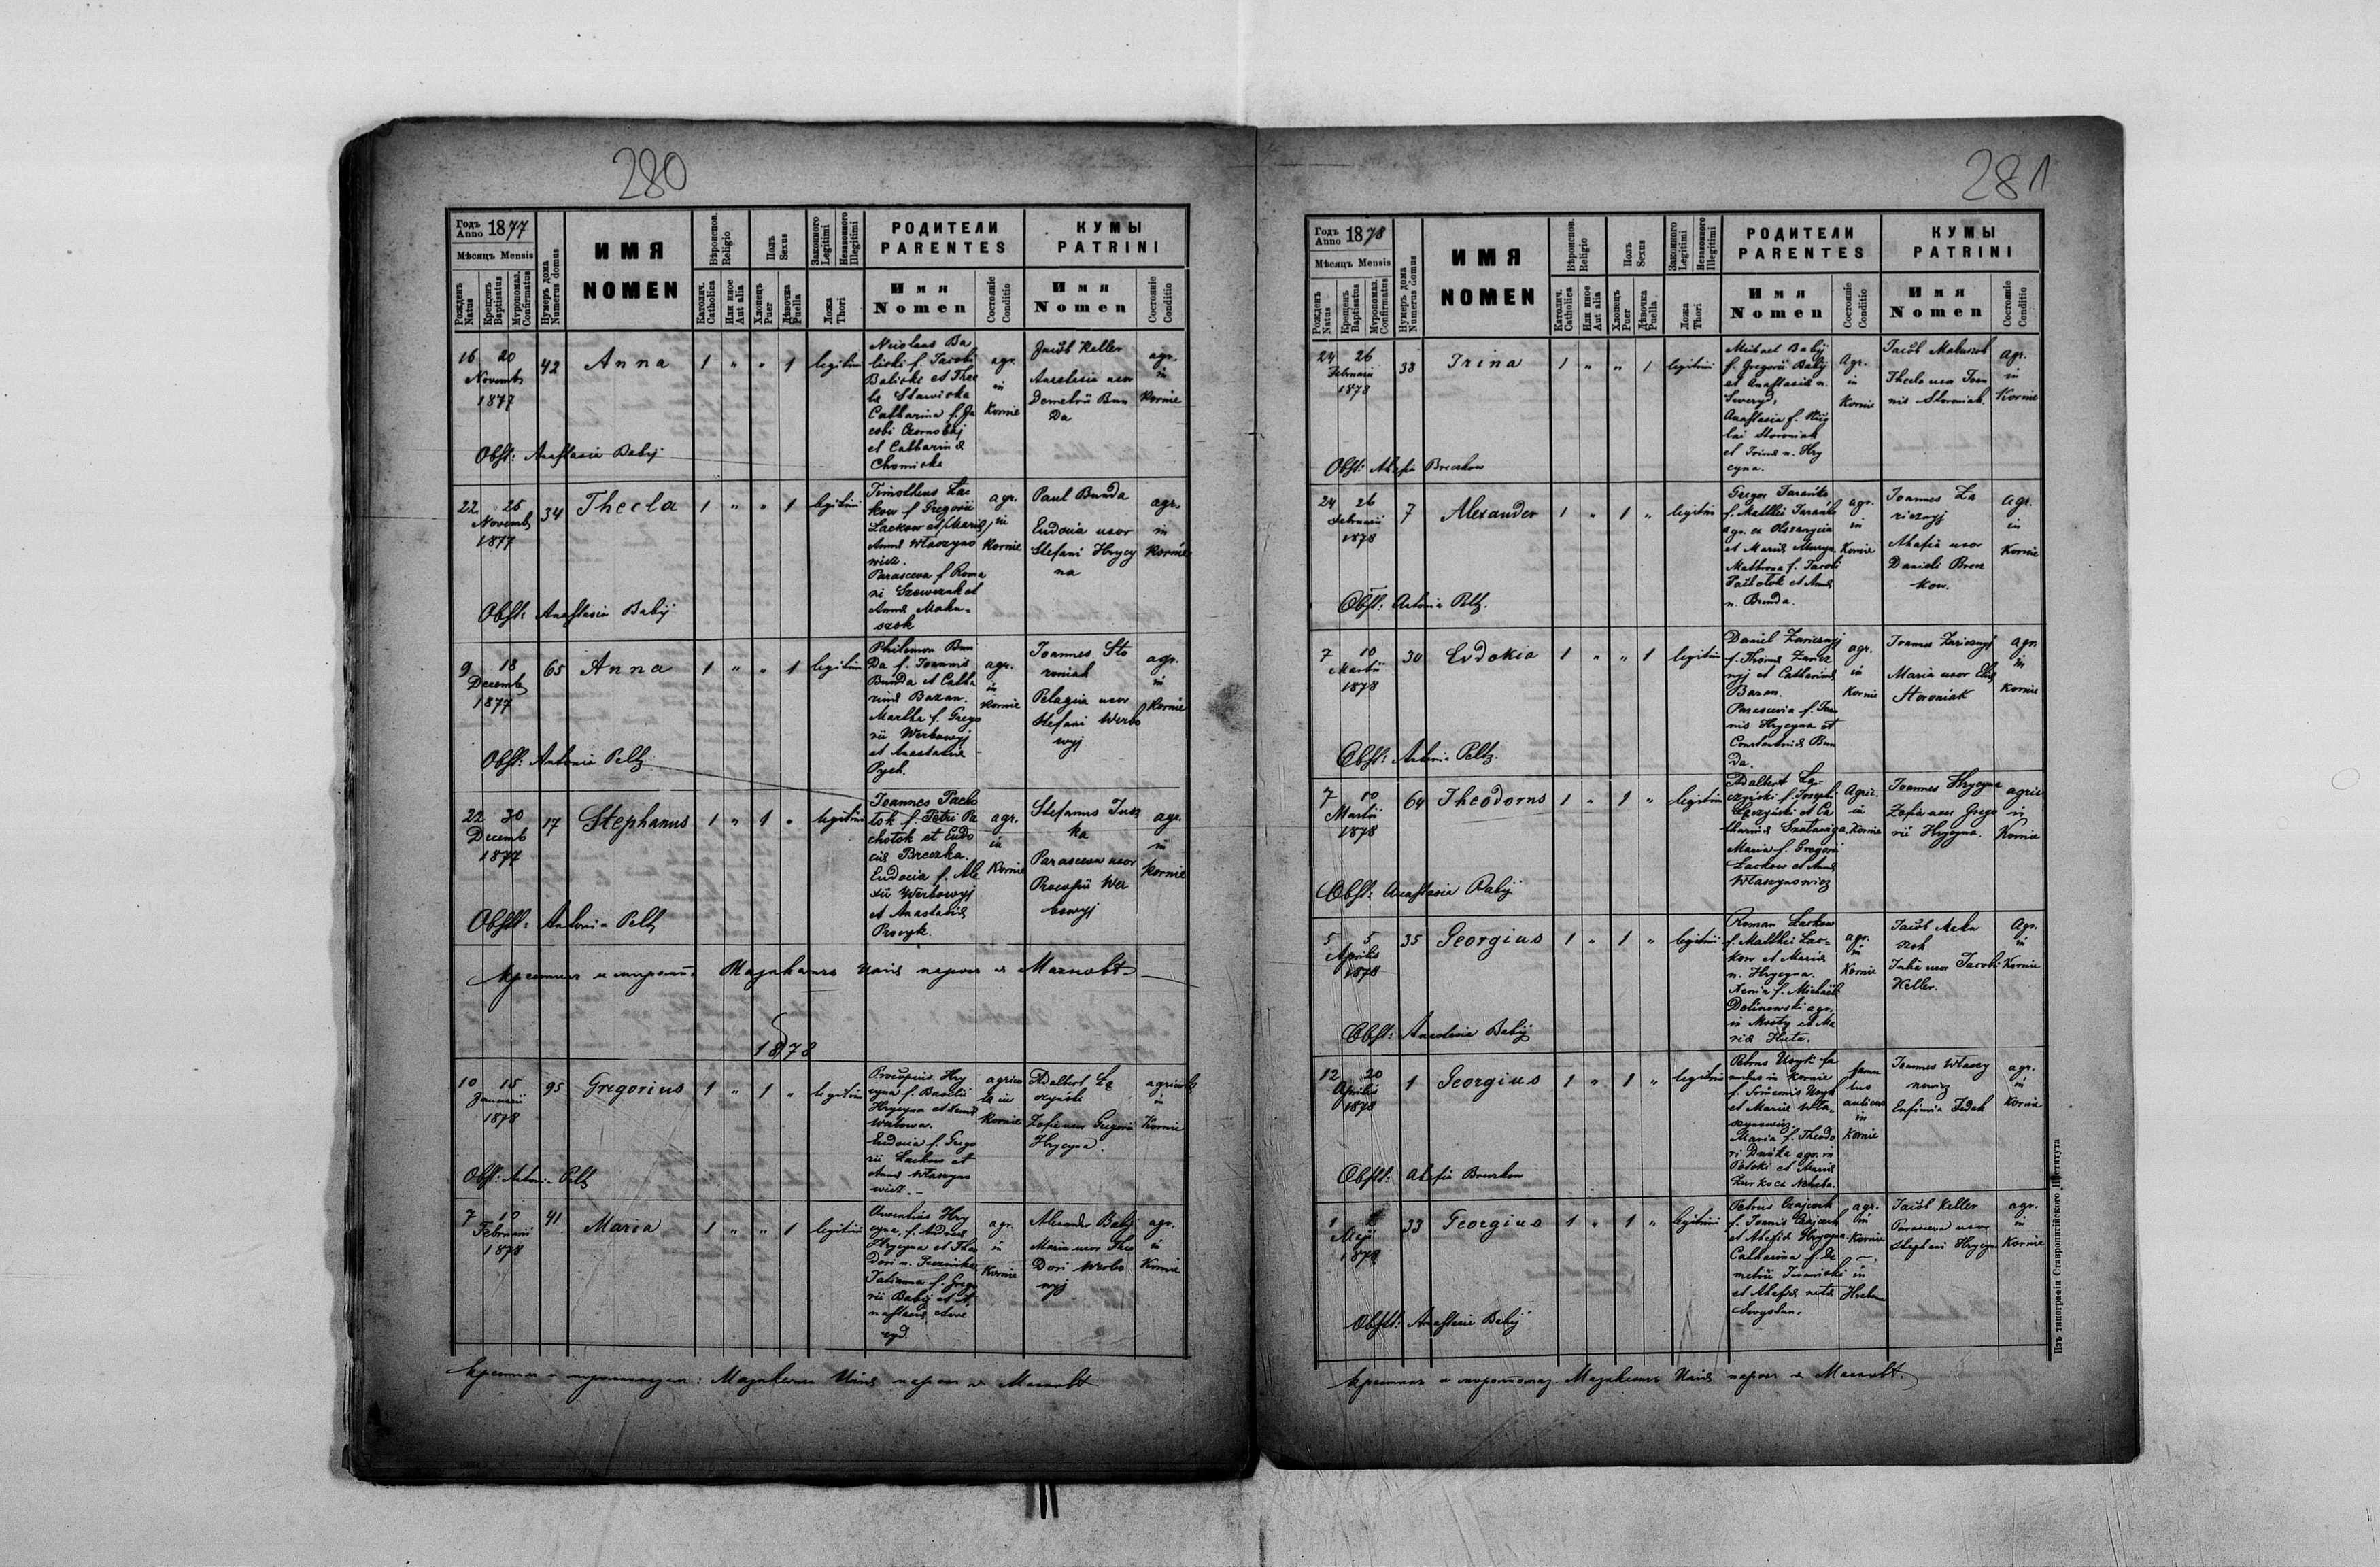 280
Годъ Anno 1877
Мѣсяцъ Mensis
Рожденъ Natus
Крещенъ Baptisatus
Мѵропомаз. Confirmatus
Нумеръ дома Numerus domus
ИМЯ
NOMEN
Вѣроиспов. Religio
Католич. Catholica
Или иное Aut alia
Полъ Sexus
Хлопець Puer
Дѣвочка Puella
Законного Legitimi
Незаконного Illegitimi
Ложа Thori
РОДИТЕЛИ
PARENTES
Имя
Nomen
Состояніе Conditio
КУМЫ
PATRINI
Имя
Nomen
Состояніе Conditio
16 20
Novemb
1877
42 Anna 1 " " 1 legitim
Balicki f. Jacobi
Balicki et Thec
la Stawicka
Catharina f. Ja
cobi Czornobaj
et Catharinæ
Chomicka
agr.
in
Kornie
Jacob Keller
Anastasia uxor
Demetrii Bun
da
agr.
in
Kornie
Obst: Anastasia Babij
22 25
Novemb
1877
34 Thecla 1 " " 1 legitim
Timotheus Łac
kow f Gregorii
Annæ Właszyno
wicz.
Parasceva f Roma
ni Szewczuk et
Annæ Maku-
szok
agr.
in
Kornie
Paul Bunda
Eudocia uxor
Stefani Hrycy
na
agr.
in
Kornie
Obst: Anastasia Babij
9 18
Decemb
1877
65 Anna 1 " " 1 legitim
Philemon Bun
da f. Joannis
Bunda et Catha
rinæ Baran.
Martha f. Grego
rii Werbowyj
et Anastasiæ
Pych.
agr.
in
Kornie
Joannes Sto
roniak
Pelagia uxor
Stefani Werbo
wyj
agr.
in
Kornie
Obst: Antonia Peltz
22 30
Decemb
1877
17 Stephanus 1 " 1 " legitim
Joannes Pacho
tok f. Petri Pa
chotok et Eudo
ciæ Breczka.
Eudocia f. Ale
xii Werbowyj
et Anastasiæ
Procyk.
agr.
in
Kornie
Stefanus
Parasceva uxor
Procopii Wer
bowyj
agr.
in
Kornie
Obst: Antonia Peltz
1878
10 15
Januarii
1878
95 Gregorius 1 " 1 " legitim
Procopius Hry
cyna f. Basilii
Hrycyna et
Eudocia f. Grego
rii Łackow et
Annæ Własyno
wicz.
agrico
la in
Kornie
Adalbert Łą
czyński
Zofia uxor Gregorii
Hrycyna.
agricola
in
Kornie
Obst: Antonia Peltz
7 10
Februarii
1878
41 Maria 1 " " 1 legitim
Hry
cyna, f. Andreæ
Hrycyna et Theo
Tatianna f. Grego
rii Babij et A
nastasiæ Seve
ryd.
agr.
in
Kornie
Alexander Babij
Maria uxor Theo
dori Werbo
wyj
agr.
in
Kornie
281
Годъ Anno 1878
Мѣсяцъ Mensis
Рожденъ Natus
Крещенъ Baptisatus
Мѵропомаз. Confirmatus
Нумеръ дома Numerus domus
ИМЯ
NOMEN
Вѣроиспов. Religio
Католич. Catholica
Или иное Aut alia
Полъ Sexus
Хлопець Puer
Дѣвочка Puella
Законного Legitimi
Незаконного Illegitimi
Ложа Thori
РОДИТЕЛИ
PARENTES
Имя
Nomen
Состояніе Conditio
КУМЫ
PATRINI
Имя
Nomen
Состояніе Conditio
24 26
Februarii
1878
38 Irina 1 " " 1 legitim
Michael Babij
f. Gregorii Babij
et Anastasiæ n.
Severyd,
Anastasia f. Nico
lai Storoniak
et Irinæ n. Hry
cyna.
Agr.
in
Kornie
Jacob Makuszok
Thecla uxor Joan
nis Storoniak.
Agr.
in
Kornie
Obst: Ahafia Breczkow
24 26
Februarii
1878
7 Alexander 1 " 1 " legitim
Gregor Tarańko
f. Matthei Tarańko
et Mariæ
Mathrona f. Jacobi
Pacholok et Annæ
n. Bunda.
agr.
in
Kornie
Joannes Za
ricznyj
Ahafia uxor
Danieli Brecz
kow.
agr.
in
Kornie
Obst: Antonia Peltz.
7 10
Martii
1878
30 Evdokia 1 " " 1 legitim
Daniel Zaricznyj
f. Thomæ Zaricz
nyj et Catharinæ
Baran.
Parascevia f. Joan
nis Hrycyna et
Constantinæ Bun
da.
agr.
in
Kornie
Joannes Zaricznyj
Maria uxor Eliæ
Storoniak
agr.
in
Kornie
Obst: Antonia Peltz.
7 10
Martii
1878
64 Theodorus 1 " 1 " legitim
Adalbert Łą-
czyński f. Josephi
Łączyński et Ca
tharinæ
Maria f. Gregorii
Łackow et Annæ
Właszynowicz
Agric.
in
Kornie
Joannes Hrycyna
Zofia uxor Grego
rii Hrycyna.
agric
in
Kornie
Obst: Anastasia Babij
5 5
Aprilis
1878
35 Georgius 1 " 1 " legitim
Roman Łackow
f. Matthei Łac-
kow et Mariæ
n. Hrycyna.
Xenia f. Michaeli
Dolinowski agr.
in Mosty et Ma
riæ Huta.
agr.
in
Kornie
Jacob Maku
szok
Julia uxor Jacobi
Keller.
Agr.
in
Kornie
Obst: Anastasia Babij
12 20
Aprilis
1878
1 Georgius 1 " 1 " legitim
Petrus Usyk fa
mulus in Kornie
f. Simeonis Usyk
et Mariæ Wła-
szynowicz.
Maria f. Theodo
ri agr. in
Potoki et Mariæ
famu
lus
aulicus
in
Kornie
Joannes Właszy
nowicz
Eufimia Fedak
agr.
in
Kornie
Obst: Ahafia Breczkow
1
Maji
1878
33 Georgius 1 " 1 " legitim
Petrus Czajczuk
f. Joannis Czajczuk
et Ahafiæ Hrycyna.
Catharina f. De
metrii
et Ahafiæ natæ
agr.
in
Kornie
Jacob Keller
Parasceva uxor
Stephani Hrycyna
agr.
in
Kornie
Obst: Anastasia Babij
Изъ типографіи Ставропигійского Института